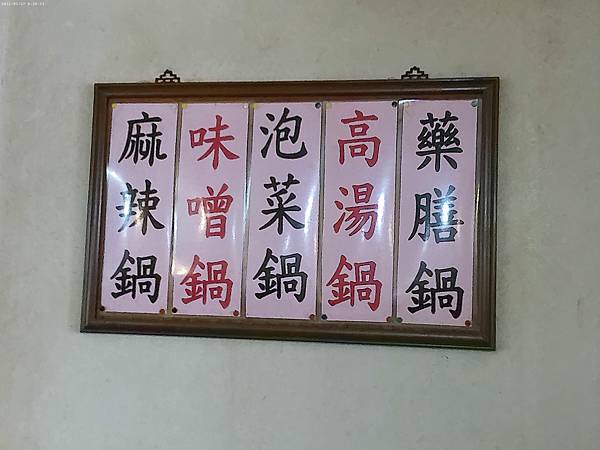 藥膳鍋
高湯鍋
泡菜鍋
味噌鍋
麻辣鍋